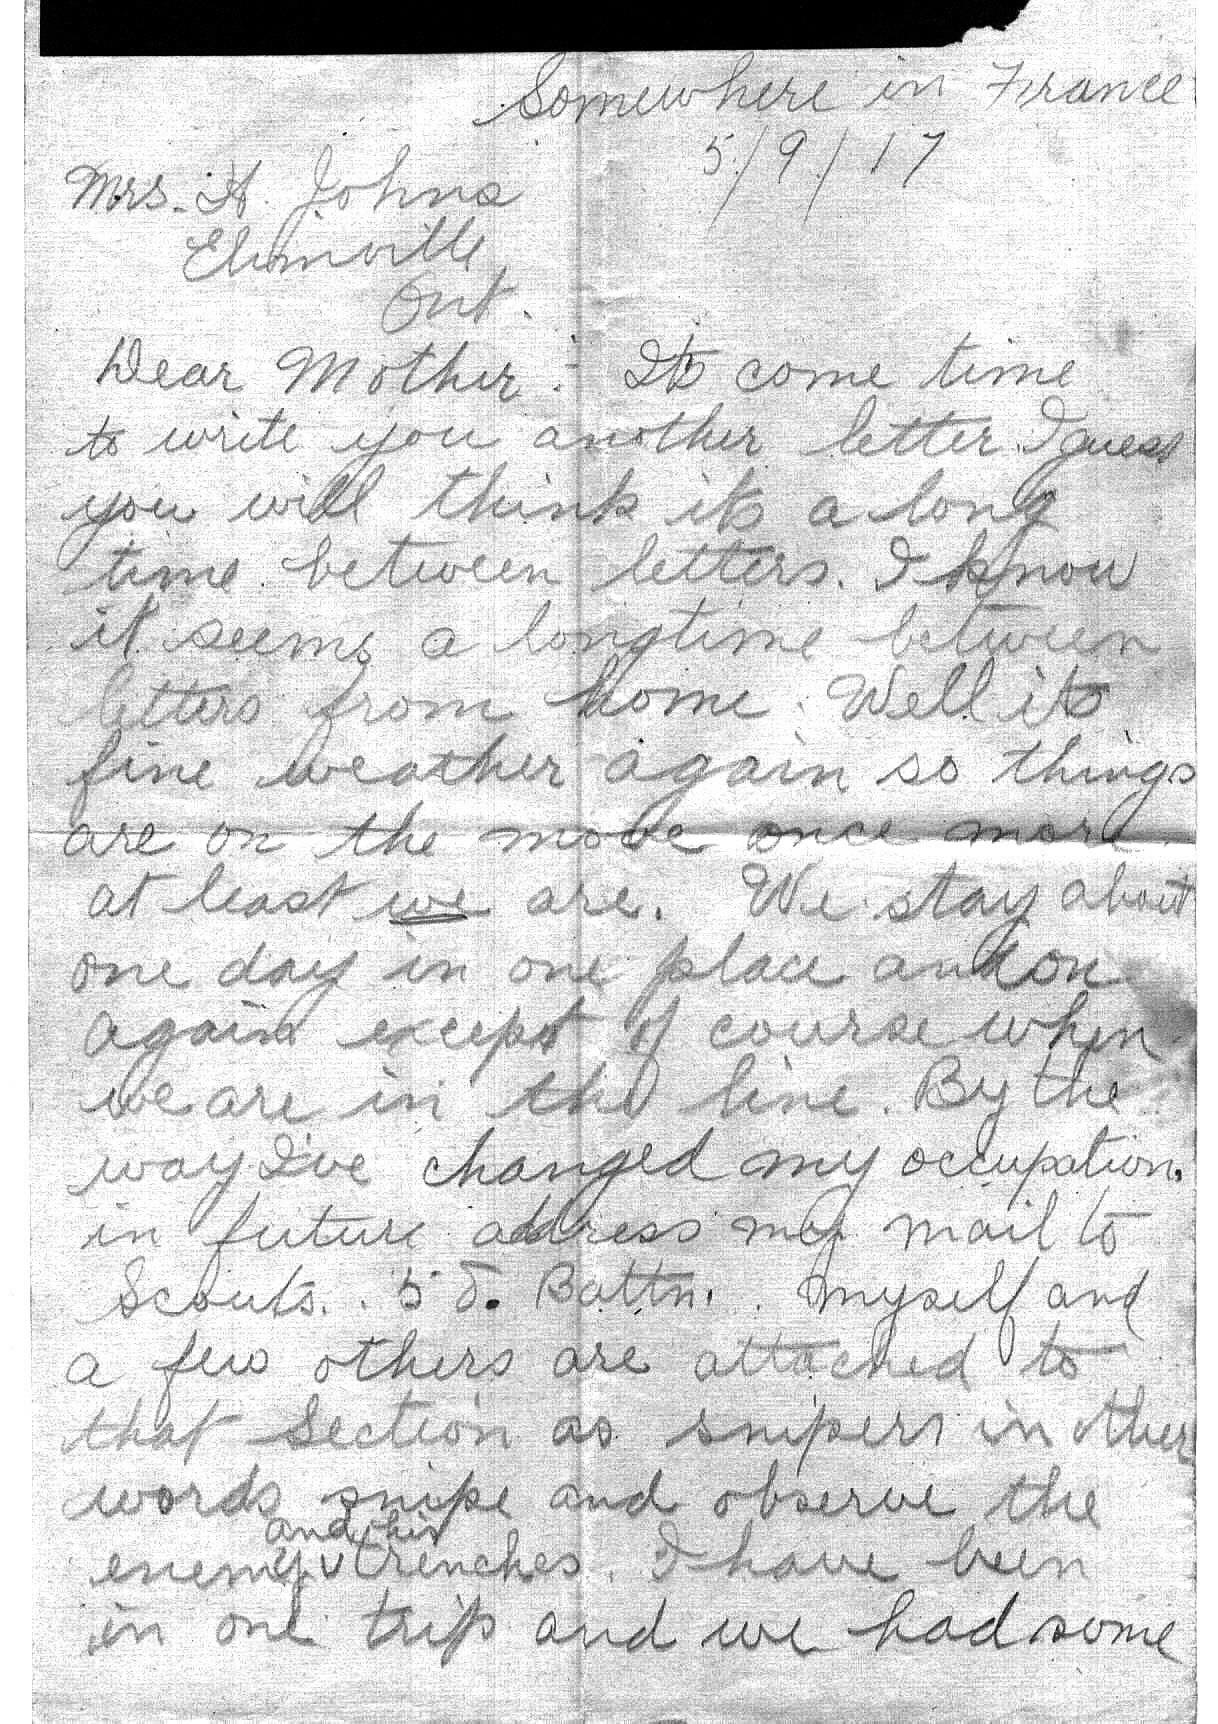 Somewhere in France
5/9/17
Mrs. H. Johns
Elimville
Ont.
Dear Mother:- Its come time
to write you another letter. I guess
you will think its a long
time between letters. I know
it seems a longtime between
letters from home. Well its
fine weather again so things
are on the move once more
at least we are. We stay about
one day in one place and on
again except of course when
we are in the line. By the
way I've changed my occupation.
in future address my mail to
Scouts. 58. Battn. Myself and
a few others are attached to
that Section as snipers in other
words snipe and observe the
and his
enemy v trenches. I have been
in one trip and we had some